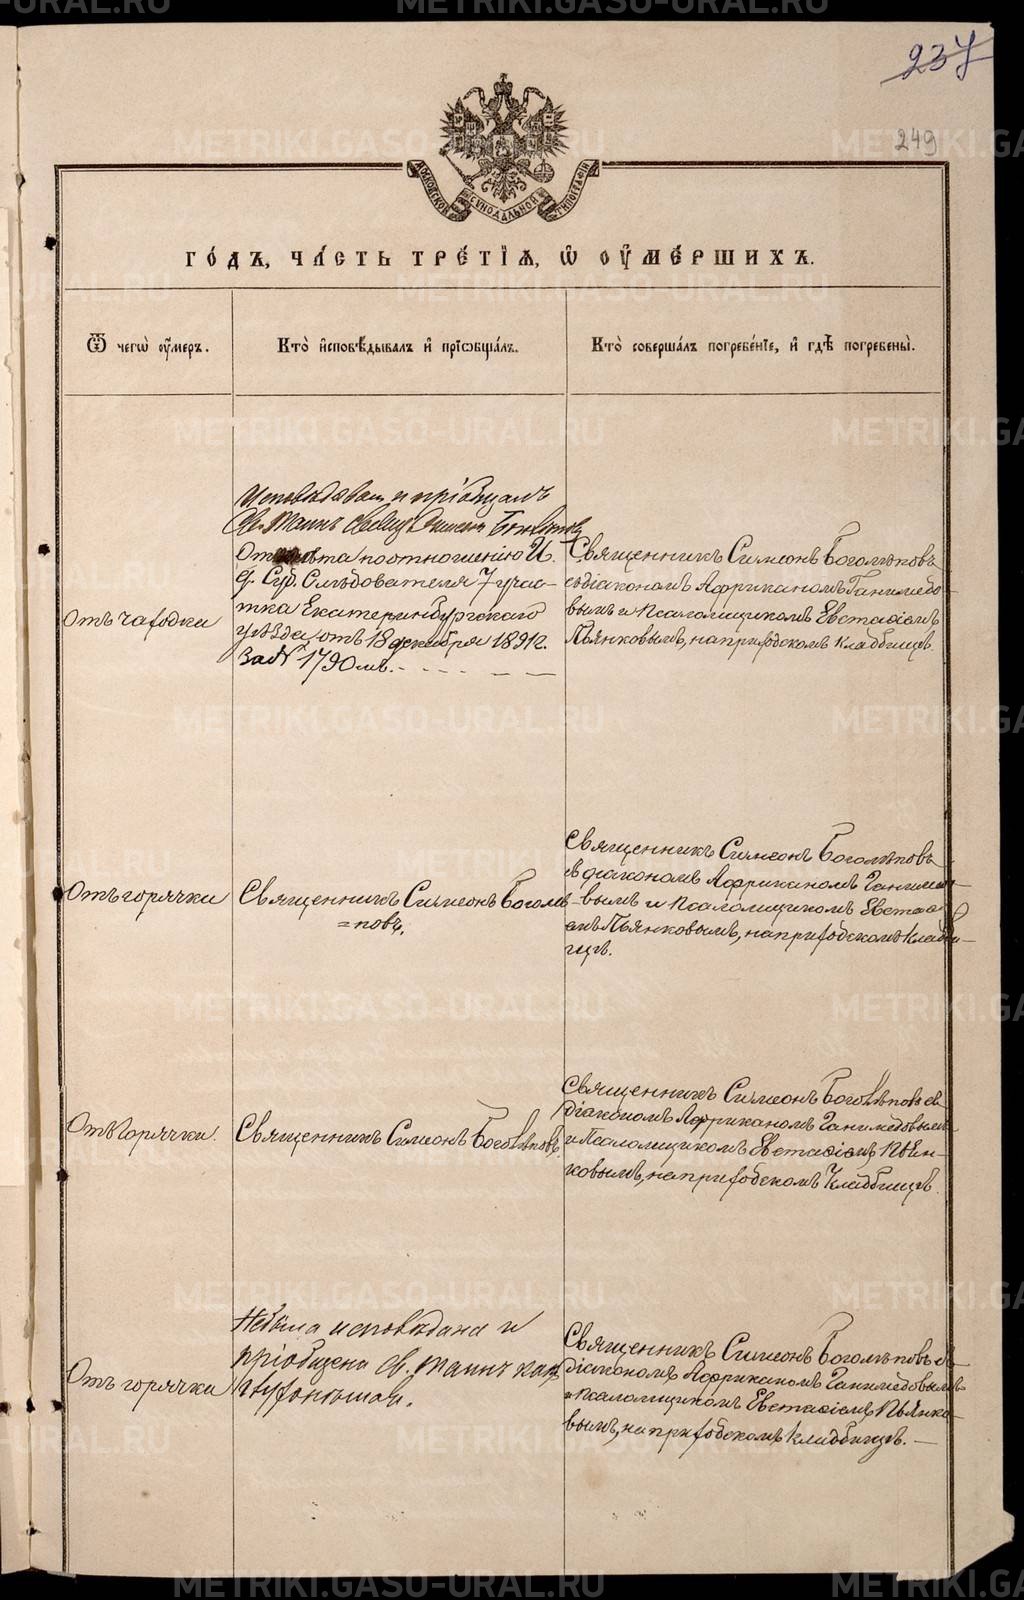 237
249
МОСКОВСКОЙ СѴНОДАЛЬНОЙ ТИПОГРАФІИ
ГО́ДЪ, ЧА́СТЬ ТРЕ́ТІѦ, Ѡ҆ ОУ҆МЕ́РШИХЪ.
Ѿ чегѡ̀ оу҆́меръ.
Кто̀ и҆сповѣ́дывалъ и҆ прїѡбща́лъ.
Кто̀ соверша́лъ погребе́нїе, и҆ гдѣ̀ погребены̀.
Отъ чахотки
и пріобщалъ
Св. Таинъ
по отношенію И.
д. Суд. Слѣдователя 7 учас-
тка Екатеринбургскаго
уѣзда, отъ 18 декабря 1891 г.
За № 1790мъ.
Священникъ Симеонъ Боголѣповъ
съ діакономъ Африканомъ Ганимедо
вымъ и Псаломщикомъ Евстафіемъ
Пьянковымъ, на приходскомъ кладбищѣ.
Отъ горячки
Священникъ Симеонъ Боголѣ
=повъ.
Священникъ Симеонъ Боголѣповъ
съ діакономъ Африканомъ Ганимедо-
-вымъ и Псаломщикомъ Евстафі
емъ Пьянковымъ, на приходскомъ кладби-
щѣ.
Отъ горячки.
Священникъ Симеонъ Боголѣповъ.
Священникъ Симеонъ Боголѣповъ съ
діакономъ Африканомъ Ганимедовымъ
и Псаломщикомъ Евстафіемъ Пьян-
ковымъ, на приходскомъ кладбищѣ.
Отъ горячки
Не была исповѣдана и
пріобщена Св. Таинъ как
Священникъ Симеонъ Боголѣповъ съ
діакономъ Африканомъ Ганимедовымъ
и Псаломщикомъ Евстафіемъ Пьянко-
вымъ, на приходскомъ кладбищѣ.
METRIKI.GASO-URAL.RU